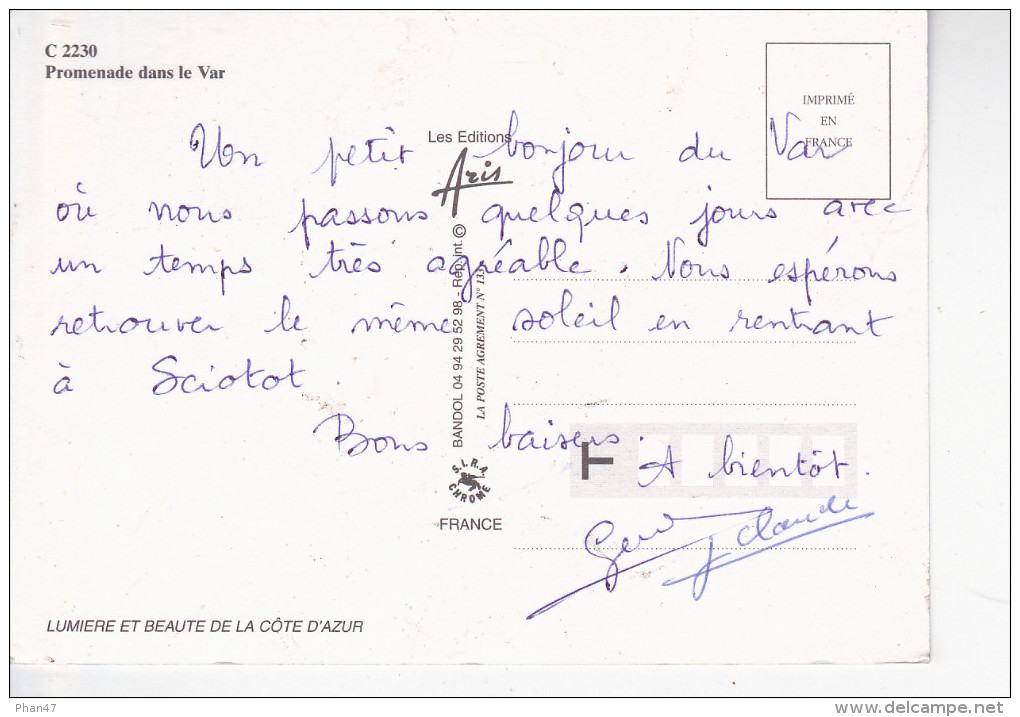 C 2230
Promenade dans le Var
IMPRIMÉ
EN
FRANCE
Les Editions
Aris
Un petit bonjour du Var
où nous passons quelques jours avec
un temps très agréable. Nous espérons
retrouver le même soleil en rentrant
à Sciotot.
Bons baisers.
A bientôt.
J Claude
BANDOL 04 94 29 52 98 - Rep. int. ©
LA POSTE AGREMENT N° 133
S.I.R.A.
CHROME
FRANCE
T
LUMIERE ET BEAUTE DE LA CÔTE D'AZUR
Phan47
delcampe.net